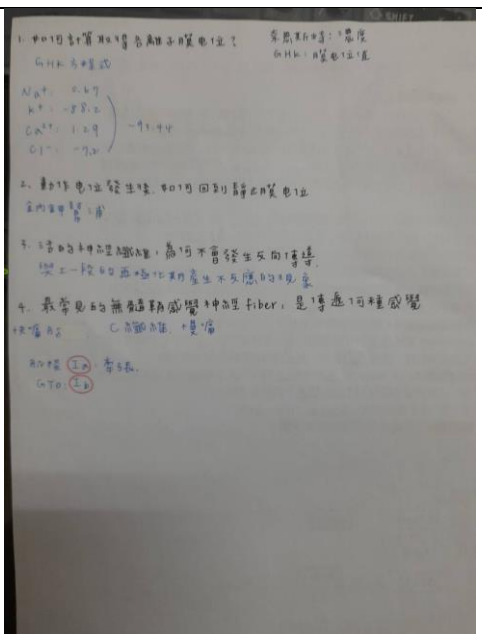 SHIFT
1. 如何計算取得各離子膜电位？
奈思斯特：濃度
GHK：膜电位值
GHK 方程式
Na⁺: 2.67
K⁺: -88.2
Ca²⁺: 1.29
Cl⁻: -7.2
-91.44
2、動作电位發生後，如何回到靜止膜电位
鈉鉀幫浦
3、活的神經纖維，為何不會發生反向傳導，
與上一段的去極化期產生不反應的現象
4、最常見的無髓鞘感覺神經fiber，是傳遞何種感覺
C 纖維 慢痛
肌梭 Ia
GTO: Ib